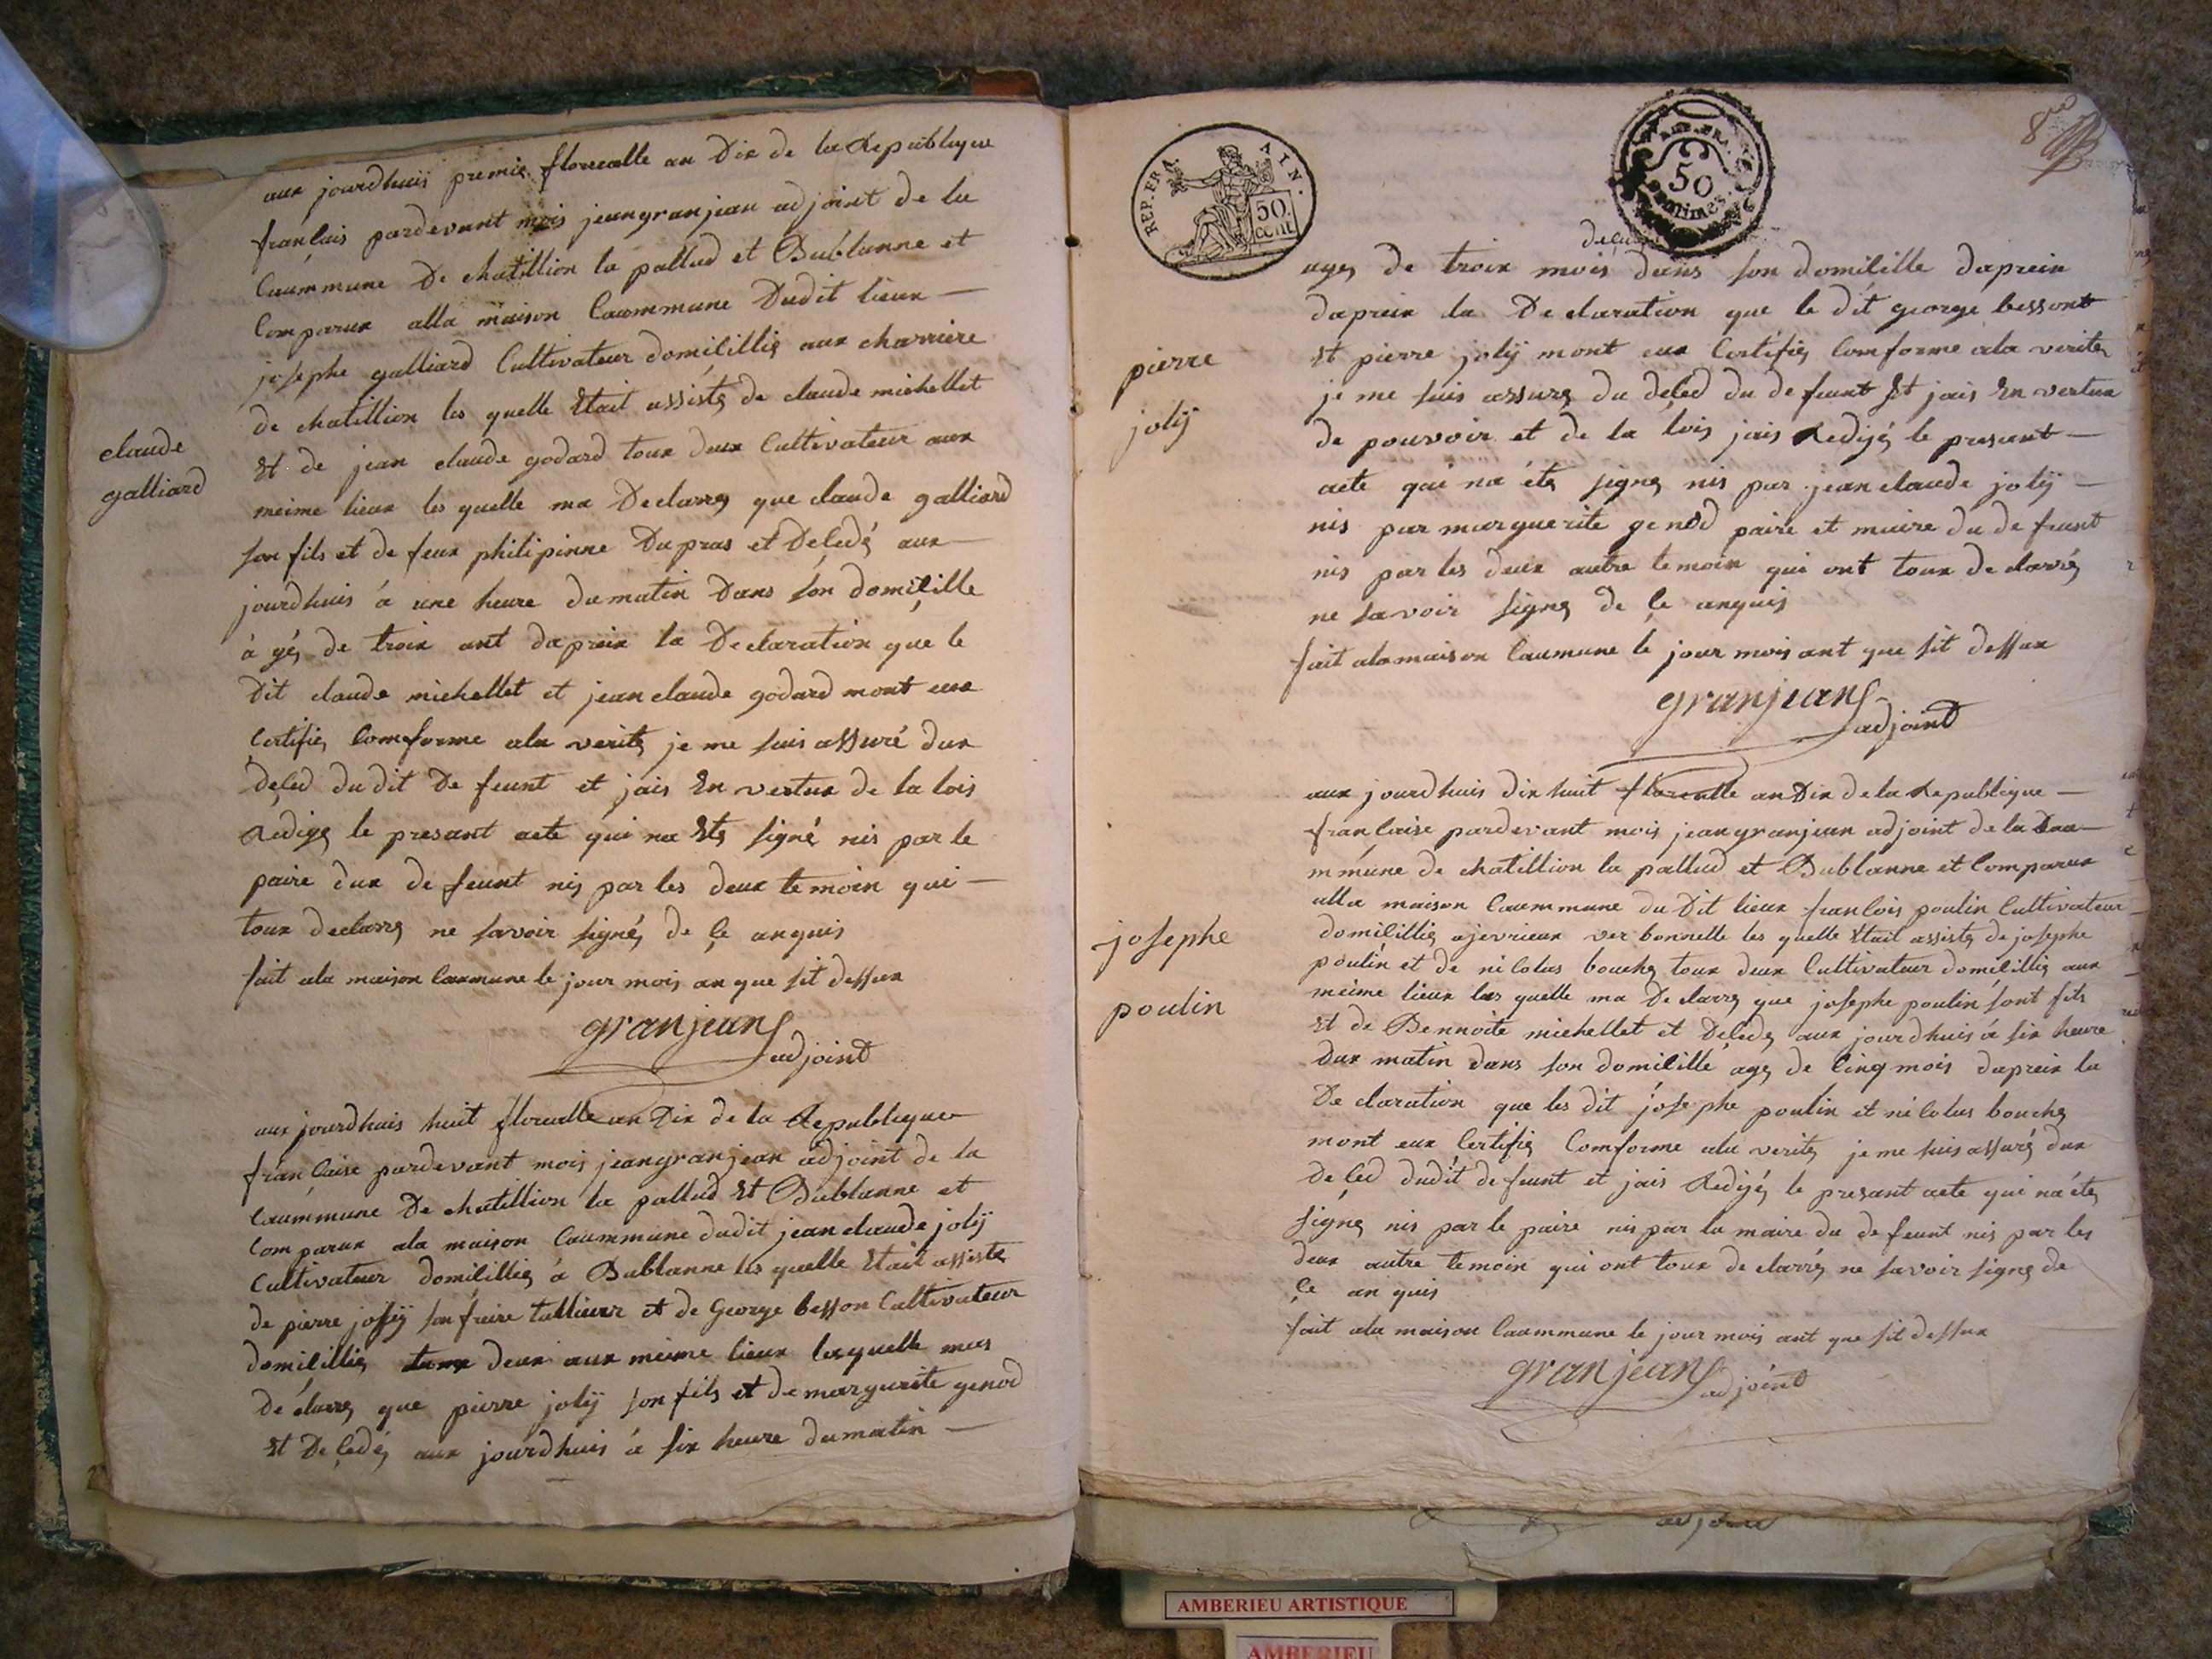 aux jourdhuij premie florealle an Dix de la Republique
franĉais pardevant mois jeangranjean adjoint de la
Caummune De chatillion la pallud et Bublanne et
Comparux alla maison Caummune Dudit lieux —
josephe galliard Cultivateur domiĉillié aux charriere
de chatillion les quelle Etait assisté de claude michellet
claude
galliard
Et de jean claude godard toux deux Cultivateur aux
meime lieux les quelle ma Declarré que claude galliard
son fils et de feux philipinne Dupras et Deĉedé aux
jourdhuis á une heure dumatin Dans son domiĉille
á gé, de troix ant dapreix la Declaration que le
Dit claude michellet et jean claude godard mont eux
Certifié Comforme ala verité je me suis assuré dux
deĉed dudit De feunt et jais En vertux de la lois
Redigé le presant acte qui na Eté signé nis par le
paire dux de feunt nis par les deux temoin qui —
toux declarré ne savoir signé, de ĉe anquis
fait ala maison Caumune le jour mois an que sit dessux
granjean
adjoint
aux jourdhuis huit florealle an Dix de la Republique
franĉaise pardevant mois jeangranjean adjoint de la
Caummune De chatillion la pallud Et Bublanne et
Comparux ala maison Caummune dudit jean claude jolÿ
Cultivateur domiĉillié á Bublanne les quelle Etait assisté
de pierre jolÿ son freire tallieur et de George besson Cultivateur
domiĉillié toux deux aux meime lieux lesquelle mas
Déclarré que pierre jolÿ son fils et de margurite genod
Et Deĉedé aux jourdhuis á six heure dumatin —
REP. FRA. AIN.
50 cent
REP. FRA.
50
centimes
8
deĉed
agé de troix mois dans son domiĉille dapreix
dapreix la Declaration que le dit george bessont
pierre
jolÿ
Et pierre jolÿ mont eux Certifié Comforme ala verité
je me suis assuré du deĉed du de feunt Et jais En vertux
de pouvoir et de la lois jais Redigé le presant —
acte qui na été signé nis par jean claude jolÿ —
nis par marguerite genod paire et maire du de feunt
nis par les deux autre temoin qui ont toux declarré
ne savoir signé de ĉe anquis
fait alamaison Caumune le jour mois ant que sit dessux
granjean
adjoint
aux jourdhuis dix huit florealle an Dix de la Republique —
franĉaise pardevant mois jeangranjean adjoint de la Cau
mmune de chatillion la pallud et Bublanne et Comparux
alla maison Caummune du Dit lieux franĉois poulin Cultivateur
josephe
poulin
domiĉillié ajevrieux ver bonnelle les quelle Etait assisté de josephe
poulin et de niĉolas bouché toux deux Cultivateur domiĉillié aux
meime lieux les quelle ma Declarré que josephe poulin sont fils
Et de Bennoite michellet et Deĉedé aux jourdhuis á six heure
Dux matin dans son domiĉille agé de Cinq mois dapreix la
Declaration que les dit josephe poulin et niĉolas bouché
mont eux Certifié Comforme ala verité je me suis assuré dux
Deĉed dudit de feunt et jais Redigé le presant acte qui na été
signé nis par le paire nis par la maire du de feunt nis par les
deux autre temoin qui ont toux declarré ne savoir signé de
ĉe an quis
fait ala maison Caummune le jour mois ant que sit dessux
granjean
adjoint
AMBERIEU ARTISTIQUE
AMBERIEU